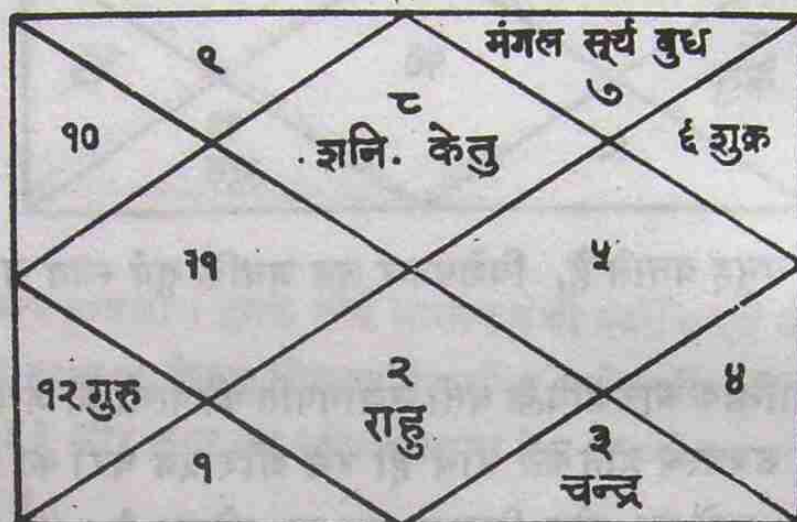 मंगल सूर्य बुध
९
७
८
१०
. शनि. केतु
६ शुक्र
११
५
१२ गुरु
२
राहु
४
१
३
चन्द्र